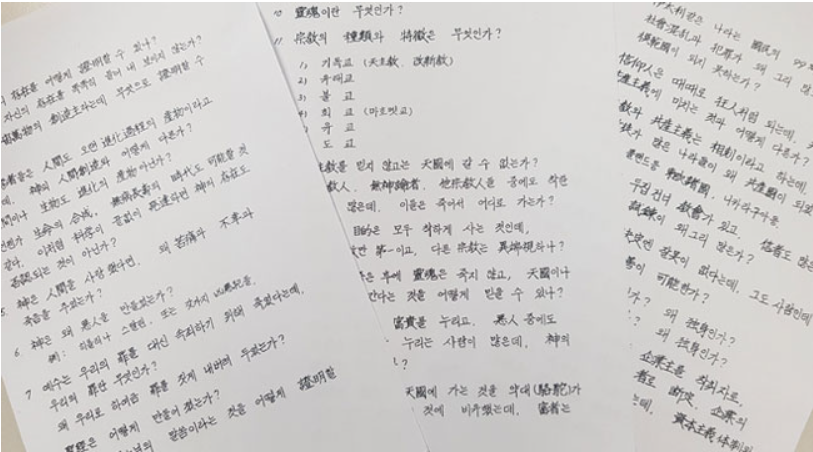 의 存在를 어떻게 證明할 수 있나?
자신의 存在를 똑똑히 들어내 보이지 않는가?
宙萬物의 創造主라는데 무엇으로 證明할 수
者들은 人間도 오랜 進化過程의 産物이라고
데, 神의 人間創造와 어떻게 다른가?
人間이나 生物도 進化의 産物 아닌가?
언젠가 生命의 合成, 無病長壽의 時代도 可能할 것
같다. 이처럼 科學이 끝없이 發達하면 神의 存在도
否認되는 것이 아닌가?
5 神은 人間을 사랑했다면, 왜 苦痛과 不幸과
죽음을 주었는가?
6 神은 왜 惡人을 만들었는가?
例: 히틀러나 스탈린, 또는 갖가지 凶惡犯들.
7 예수는 우리의 罪를 대신 속죄하기 위해 죽었다는데,
우리의 罪란 무엇인가?
왜 우리로 하여금 罪를 짓게 내버려 두었는가?
聖經은 어떻게 만들어졌는가?
느님의 말씀이라는 것을 어떻게 證明할
10 靈魂이란 무엇인가?
11 宗敎의 種類와 特徵은 무엇인가?
1) 기독교 (天主敎, 改新敎)
2) 유대교
3) 불 교
4) 회 교 (마호멧교)
유 교
도 교
主敎를 믿지 않고는 天國에 갈 수 없는가?
敎人, 無神論者, 他宗敎人들 중에도 착한
많은데, 이들은 죽어서 어디로 가는가?
目的은 모두 착하게 사는 것인데,
만 第一이고, 다른 宗敎는 異端視하나?
은 後에 靈魂은 죽지 않고, 天國이나
간다는 것을 어떻게 믿을 수 있나?
富貴를 누리고, 惡人 중에도
누리는 사람이 많은데, 神의
?
天國에 가는 것을 약대(駱駝)가
것에 비유했는데, 富者는
같은 나라는 國民의 99
社會混亂과 犯罪가 왜 그리 많
模範國이 되지 못하는가?
信仰人은 때때로 狂人처럼 되는데,
共産主義에 미치는 것과 어떻게 다른가?
敎와 共産主義는 相剋이라고 하는데,
많은 나라들이 왜 共産國이 되었
폴랜드등 東歐諸國, 니카라구아등.
두집 건너 敎會가 있고, 信者도 많은
試鍊이 왜 그리 많은가?
決定엔 잘못이 없다는데, 그도 사람인데
이 可能한가?
가? 왜 獨身인가?
? 왜 獨身인가?
企業主를 착취자로,
者로 斷定, 企業의
는데, 資本主義 体制와